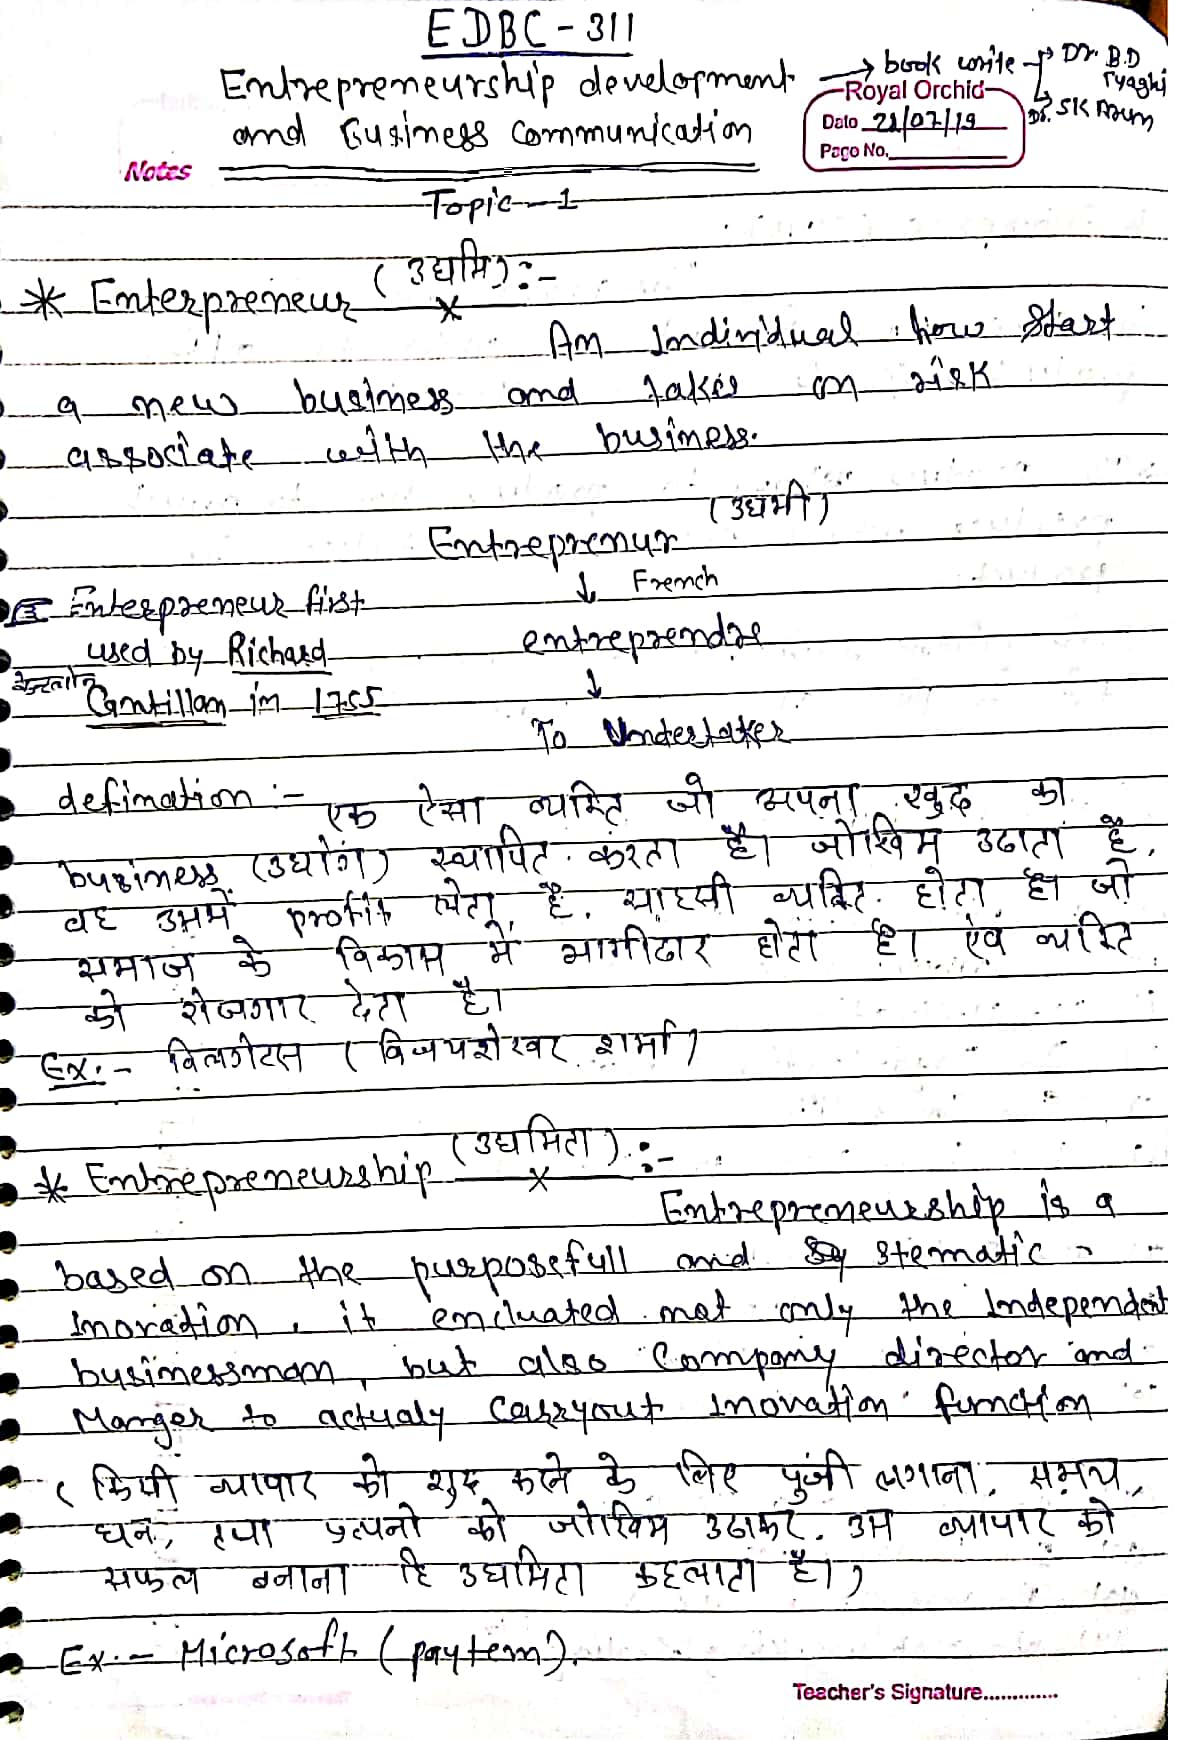 EDBC - 311
Entrepreneurship development
and Business Communication
→ book write → Dr. B.D Tyagi
→ Dr. SK Arum
Royal Orchid
Date 21/07/19
Page No.
Notes
Topic - 1
* Enterpreneur (उद्यमि) :-
An Individual how start
a new business and takes on risk
associate with the business.
(उद्यमी)
Entreprenur
↓ French
Enterpreneur first
used by Richard
केन्टलोन
Cantillan in 1755
entreprendre
↓
To Undertaker
defination :- एक ऐसा व्यक्ति जो अपना खुद का
business (उद्योग) स्थापित करता है। जोखिम उठाता है,
वह उसमें profit लेता है. साहसी व्यक्ति होता है। जो
समाज के विकास में भागीदार होता है। एवं व्यक्ति
को रोजगार देता है।
Ex:- बिलगेटस (विजयशेखर शर्मा)
* Entrepreneurship (उद्यमिता) :-
Entrepreneurship is a
based on the purposefull and systematic
Inovation, it encluated not only the Independent
businessman, but also Company director and
Manger to actualy carryout Inovation function
(किसी व्यापार को शुरू करने के लिए पुंजी लगाना, समय,
धन, तथा प्रत्यनो को जोखिम उठाकर. उस व्यापार को
सफल बनाना हि उद्यमिता कहलाता है।)
Ex. - Microsoft (paytem).
Teacher's Signature.............